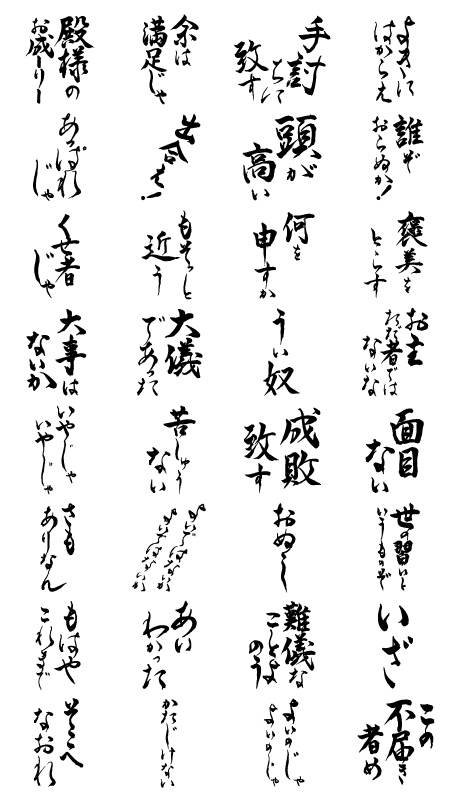 よきに
はからえ
手討
ちに
致す
余は
満足じゃ
殿様の
お成ーりー
誰ぞ
おらぬか!
頭が
高い
出合え!
あっぱれ
じゃ
褒美を
とらす
何を
申すか
もそっと
近う
くせ者
じゃ
お主
ただ者では
ないな
うい
奴
大儀
であった
大事は
ないか
面目
ない
成敗
致す
苦しゅう
ない
いやじゃ
いやじゃ
世の習いと
いうものぞ
おぬし
さも
ありなん
いざ
難儀な
ことよ
のう
あい
わかった
もはや
これまで
この
不届き
者め
よいのじゃ
よいのじゃ
かたじけない
そこへ
なおれ